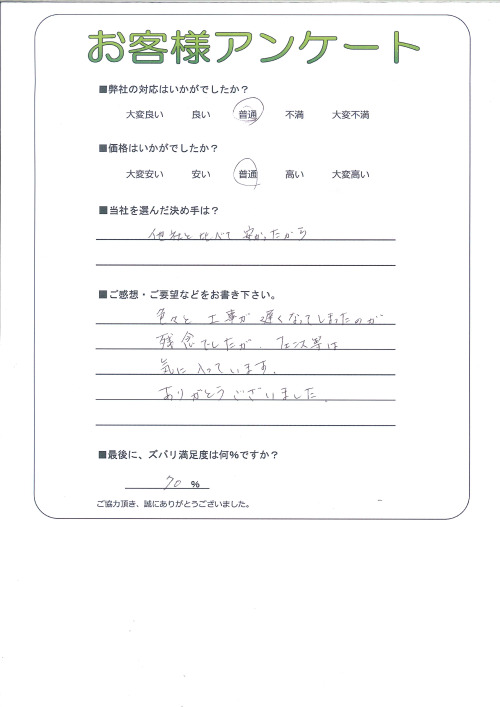 お客様アンケート
■弊社の対応はいかがでしたか？
大変良い 良い 普通 不満 大変不満
■価格はいかがでしたか？
大変安い 安い 普通 高い 大変高い
■当社を選んだ決め手は？
他社と比べて安かったから
■ご感想・ご要望などをお書き下さい。
色々と工事が遅くなってしまったのが
残念でしたが、フェンス等は
気に入っています。
ありがとうございました。
■最後に、ズバリ満足度は何%ですか？
70 %
ご協力頂き、誠にありがとうございました。